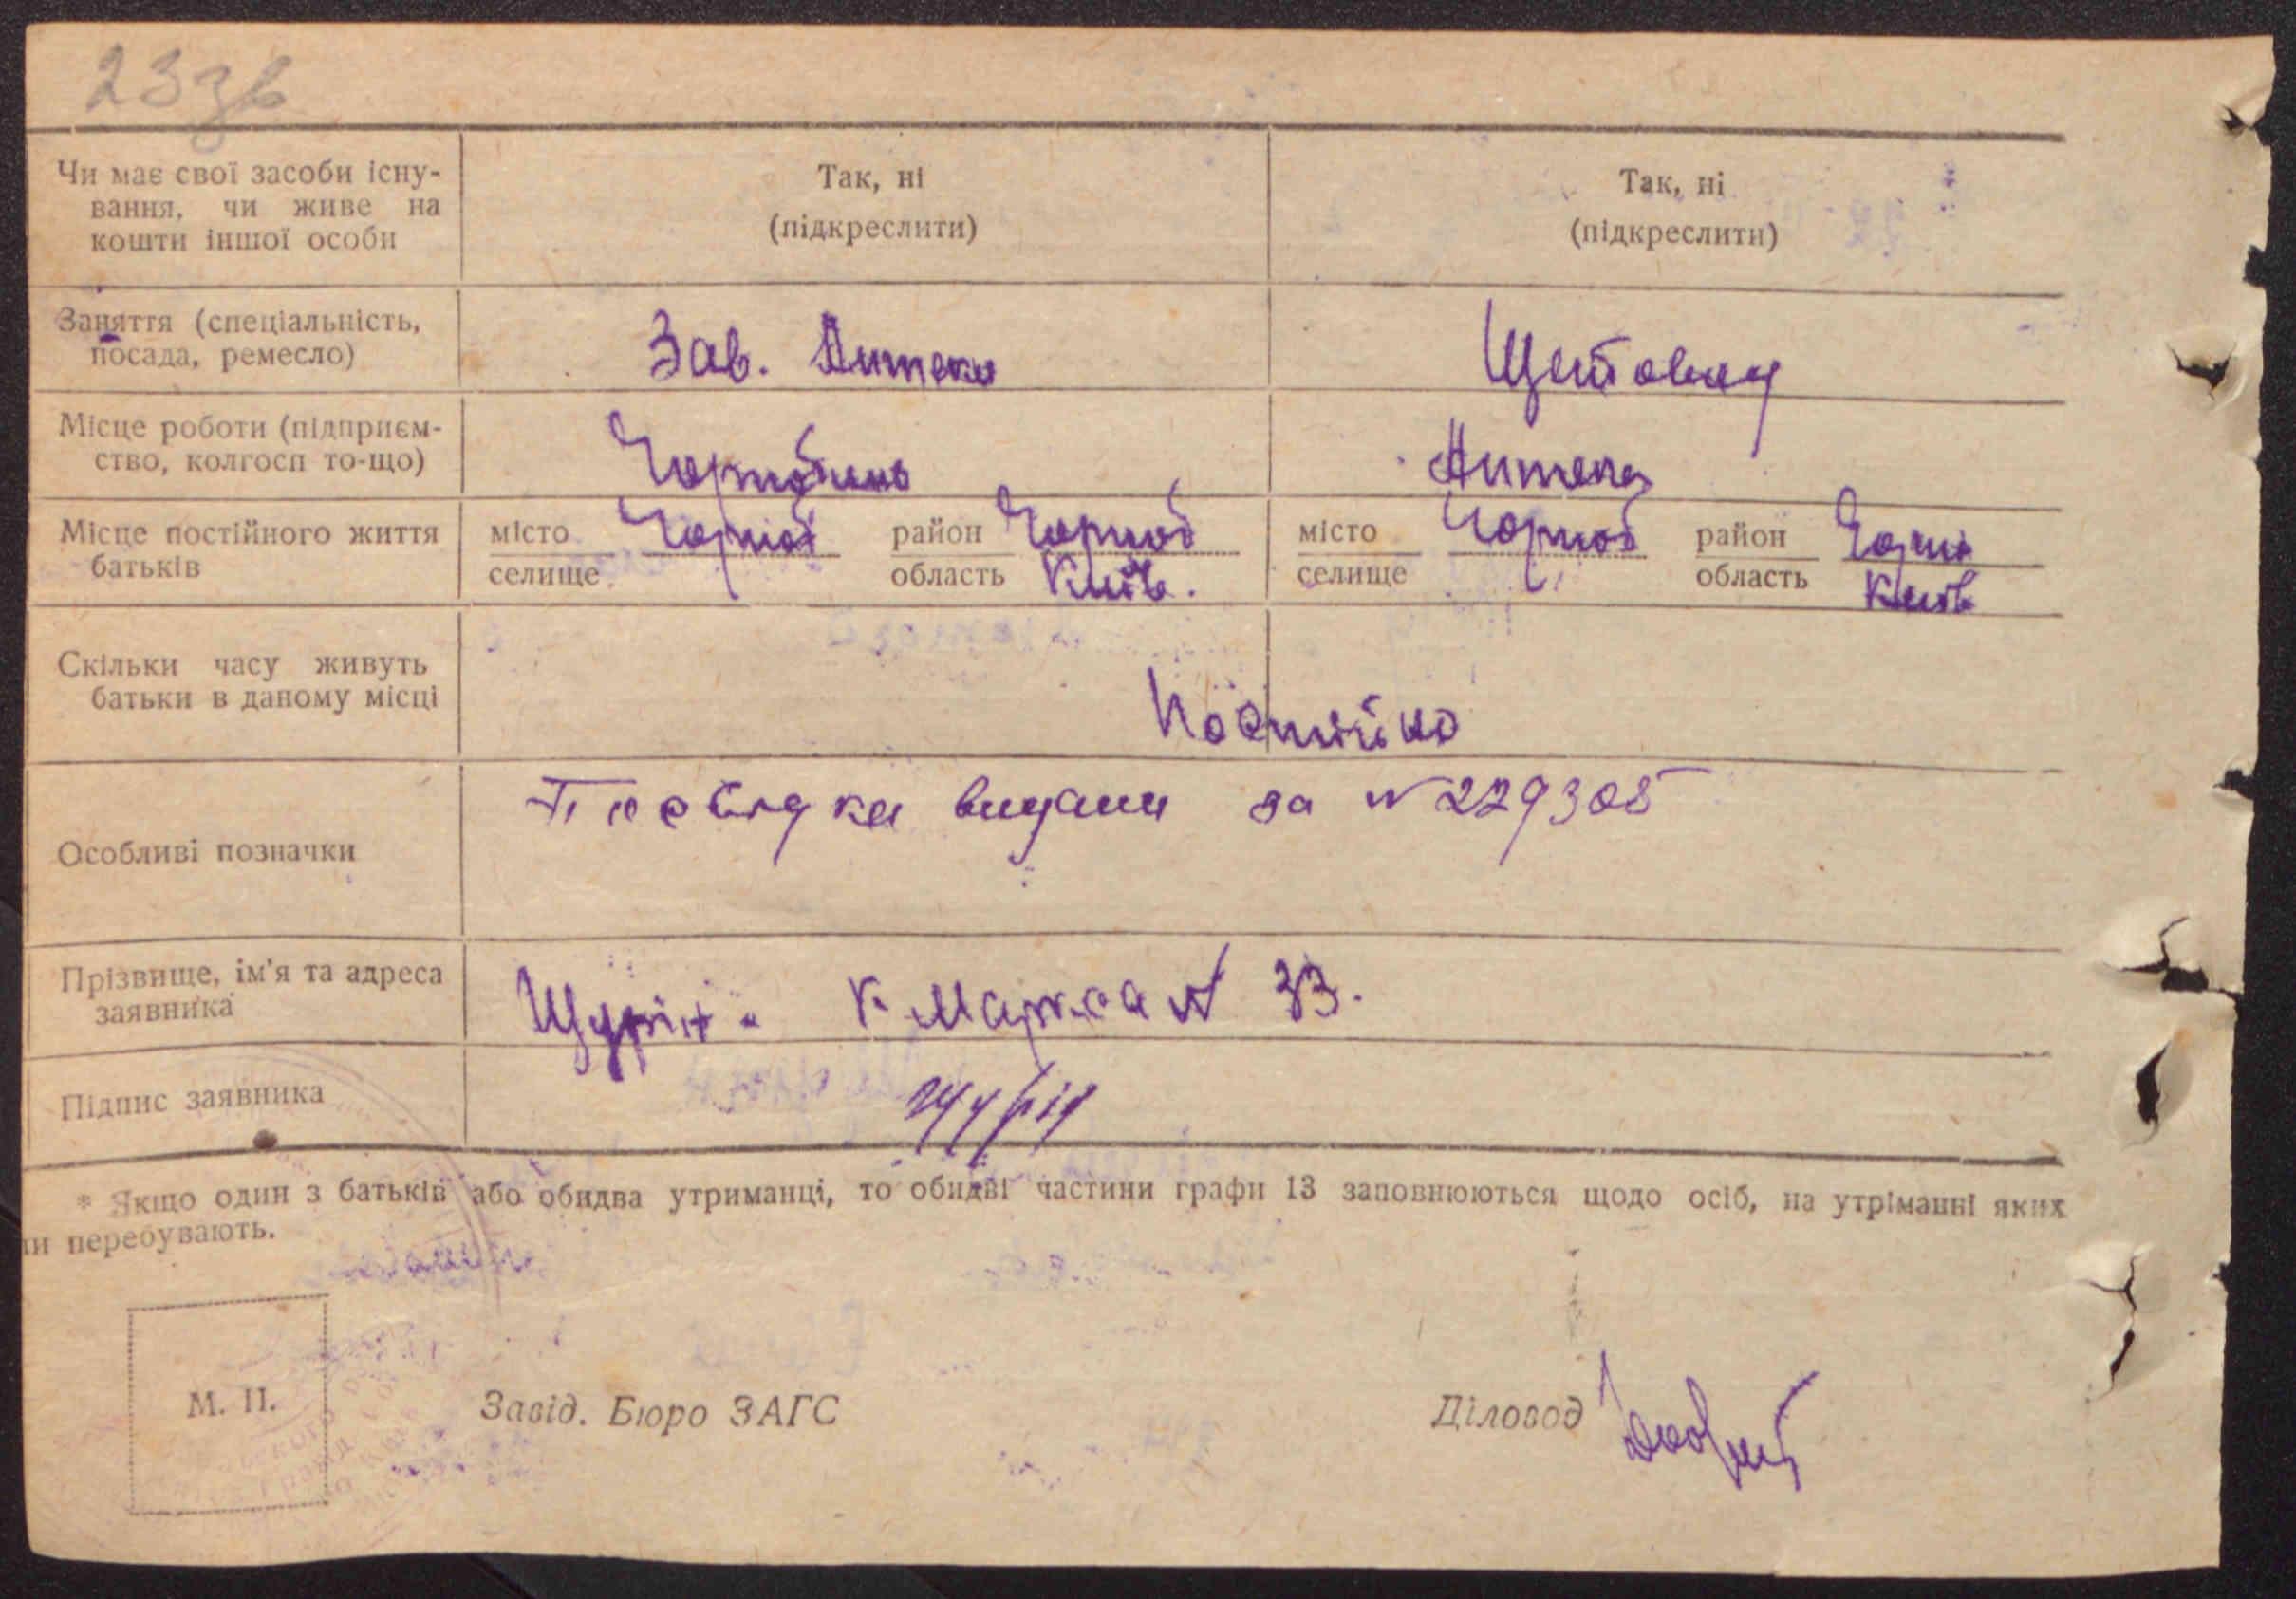 23зв
Чи має свої засоби існу-
вання, чи живе на
кошти іншої особи
Так, ні
(підкреслити)
Так, ні
(підкреслити)
Заняття (спеціальність,
посада, ремесло)
Зав. Аптеки
Місце роботи (підприєм-
ство, колгосп то-що)
Чорнобиль
Аптека
Місце постійного життя
батьків
місто Чорноб район Чорноб
селище область Київ.
місто Чорноб район Чорн
селище область Київ
Скільки часу живуть
батьки в даному місці
Постійно
Особливі позначки
видани за № 229305
Прізвище, ім'я та адреса
заявника
К Маркса № 33.
Підпис заявника
* Якщо один з батьків або обидва утриманці, то обидві частини графи 13 заповнюються щодо осіб, на утріманні яких
ни перебувають.
М. П.
Завід. Бюро ЗАГС
Діловод